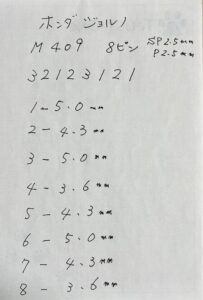 ホンダ ジョルノ
M409 8ピン SP2.5mm
P2.5mm
32123121
1-5.0mm
2-4.3mm
3-5.0mm
4-3.6mm
5-4.3mm
6-5.0mm
7-4.3mm
8-3.6mm